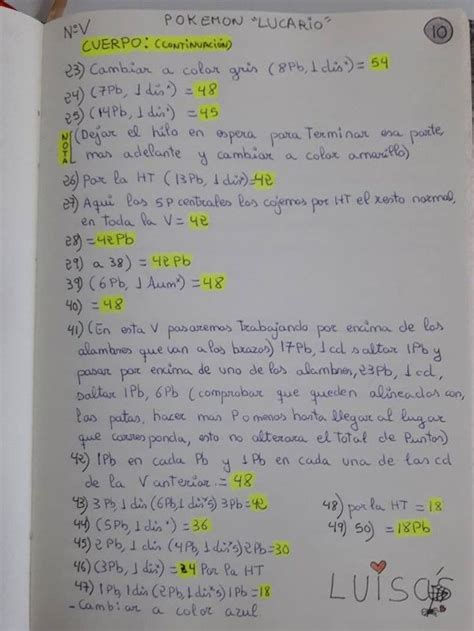 Nº V
POKEMON "LUCARIO"
10
CUERPO: (CONTINUACIÓN)
23) Cambiar a color gris (8Pb, 1 dis*) = 54
24) (7Pb, 1 dis*) = 48
25) (14Pb, 1 dis*) = 45
NOTA
(Dejar el hilo en espera para Terminar esa parte
mas adelante y cambiar a color amarillo)
26) Por la HT (13Pb, 1 dis*) = 42
27) Aqui los 5P centrales los cojemos por HT el resto normal,
en toda la V = 42
28) = 42Pb
29) a 38) = 42Pb
39) (6Pb, 1 Aum*) = 48
40) = 48
41) (En esta V pasaremos Trabajando por encima de los
alambres que van a los brazos) 17Pb, 1cd saltar 1Pb y
pasar por encima de uno de los alambres, 23Pb, 1cd,
saltar 1Pb, 6Pb (comprobar que queden alineados con
las patas, hacer mas P o menos hasta llegar al lugar
que corresponda, esto no alterara el Total de Puntos)
42) 1Pb en cada Pb y 1Pb en cada una de las cd
de la V anterior = 48
43) 3Pb, 1 dis (6Pb, 1 dis*5) 3Pb = 42
44) (5Pb, 1 dis*) = 36
45) 2Pb, 1 dis (4Pb, 1 dis*5) 2Pb = 30
46) (3Pb, 1 dis*) = 24 Por la HT
47) 1Pb, 1 dis (2Pb, 1 dis*5) 1Pb = 18
- Cambiar a color azul.
48) por la HT = 18
49) 50) = 18Pb
LUISA'S